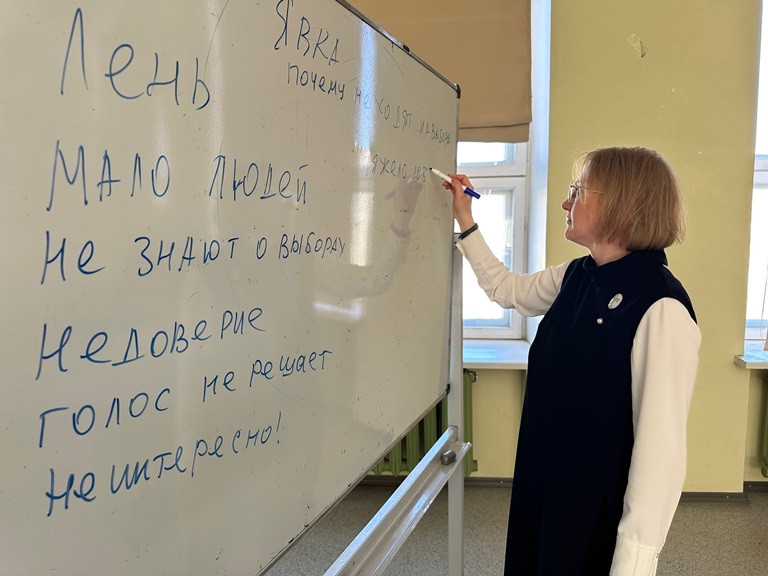 Явка
почему не ходят на выборы
Лень
мало людей
не знают о выборах
недоверие
голос не решает
неинтересно!